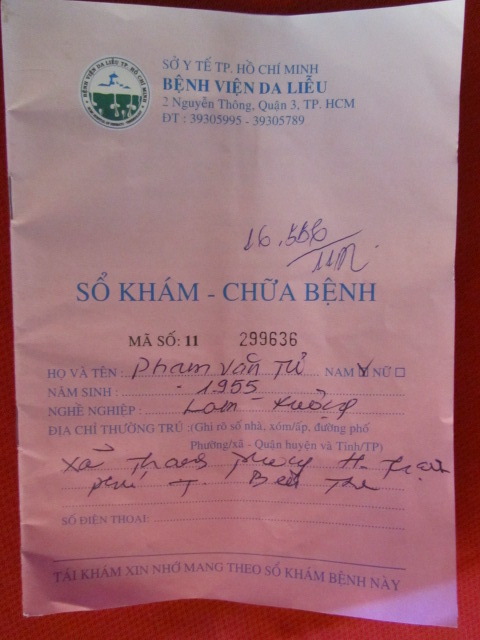 BỆNH VIỆN DA LIỄU TP. HỒ CHÍ MINH
SỞ Y TẾ TP. HỒ CHÍ MINH
BỆNH VIỆN DA LIỄU
2 Nguyễn Thông, Quận 3, TP. HCM
ĐT : 39305995 - 39305789
SỔ KHÁM - CHỮA BỆNH
MÃ SỐ: 11 299636
HỌ VÀ TÊN : Phạm Văn Tử NAM ☑ NỮ ☐
NĂM SINH : 1955
NGHỀ NGHIỆP : Làm
ĐỊA CHỈ THƯỜNG TRÚ :(Ghi rõ số nhà, xóm/ấp, đường phố
Phường/xã - Quận huyện và Tỉnh/TP)
Xã Thạnh H. Thạnh
Phú T. Bến Tre
SỐ ĐIỆN THOẠI:
TÁI KHÁM XIN NHỚ MANG THEO SỔ KHÁM BỆNH NÀY